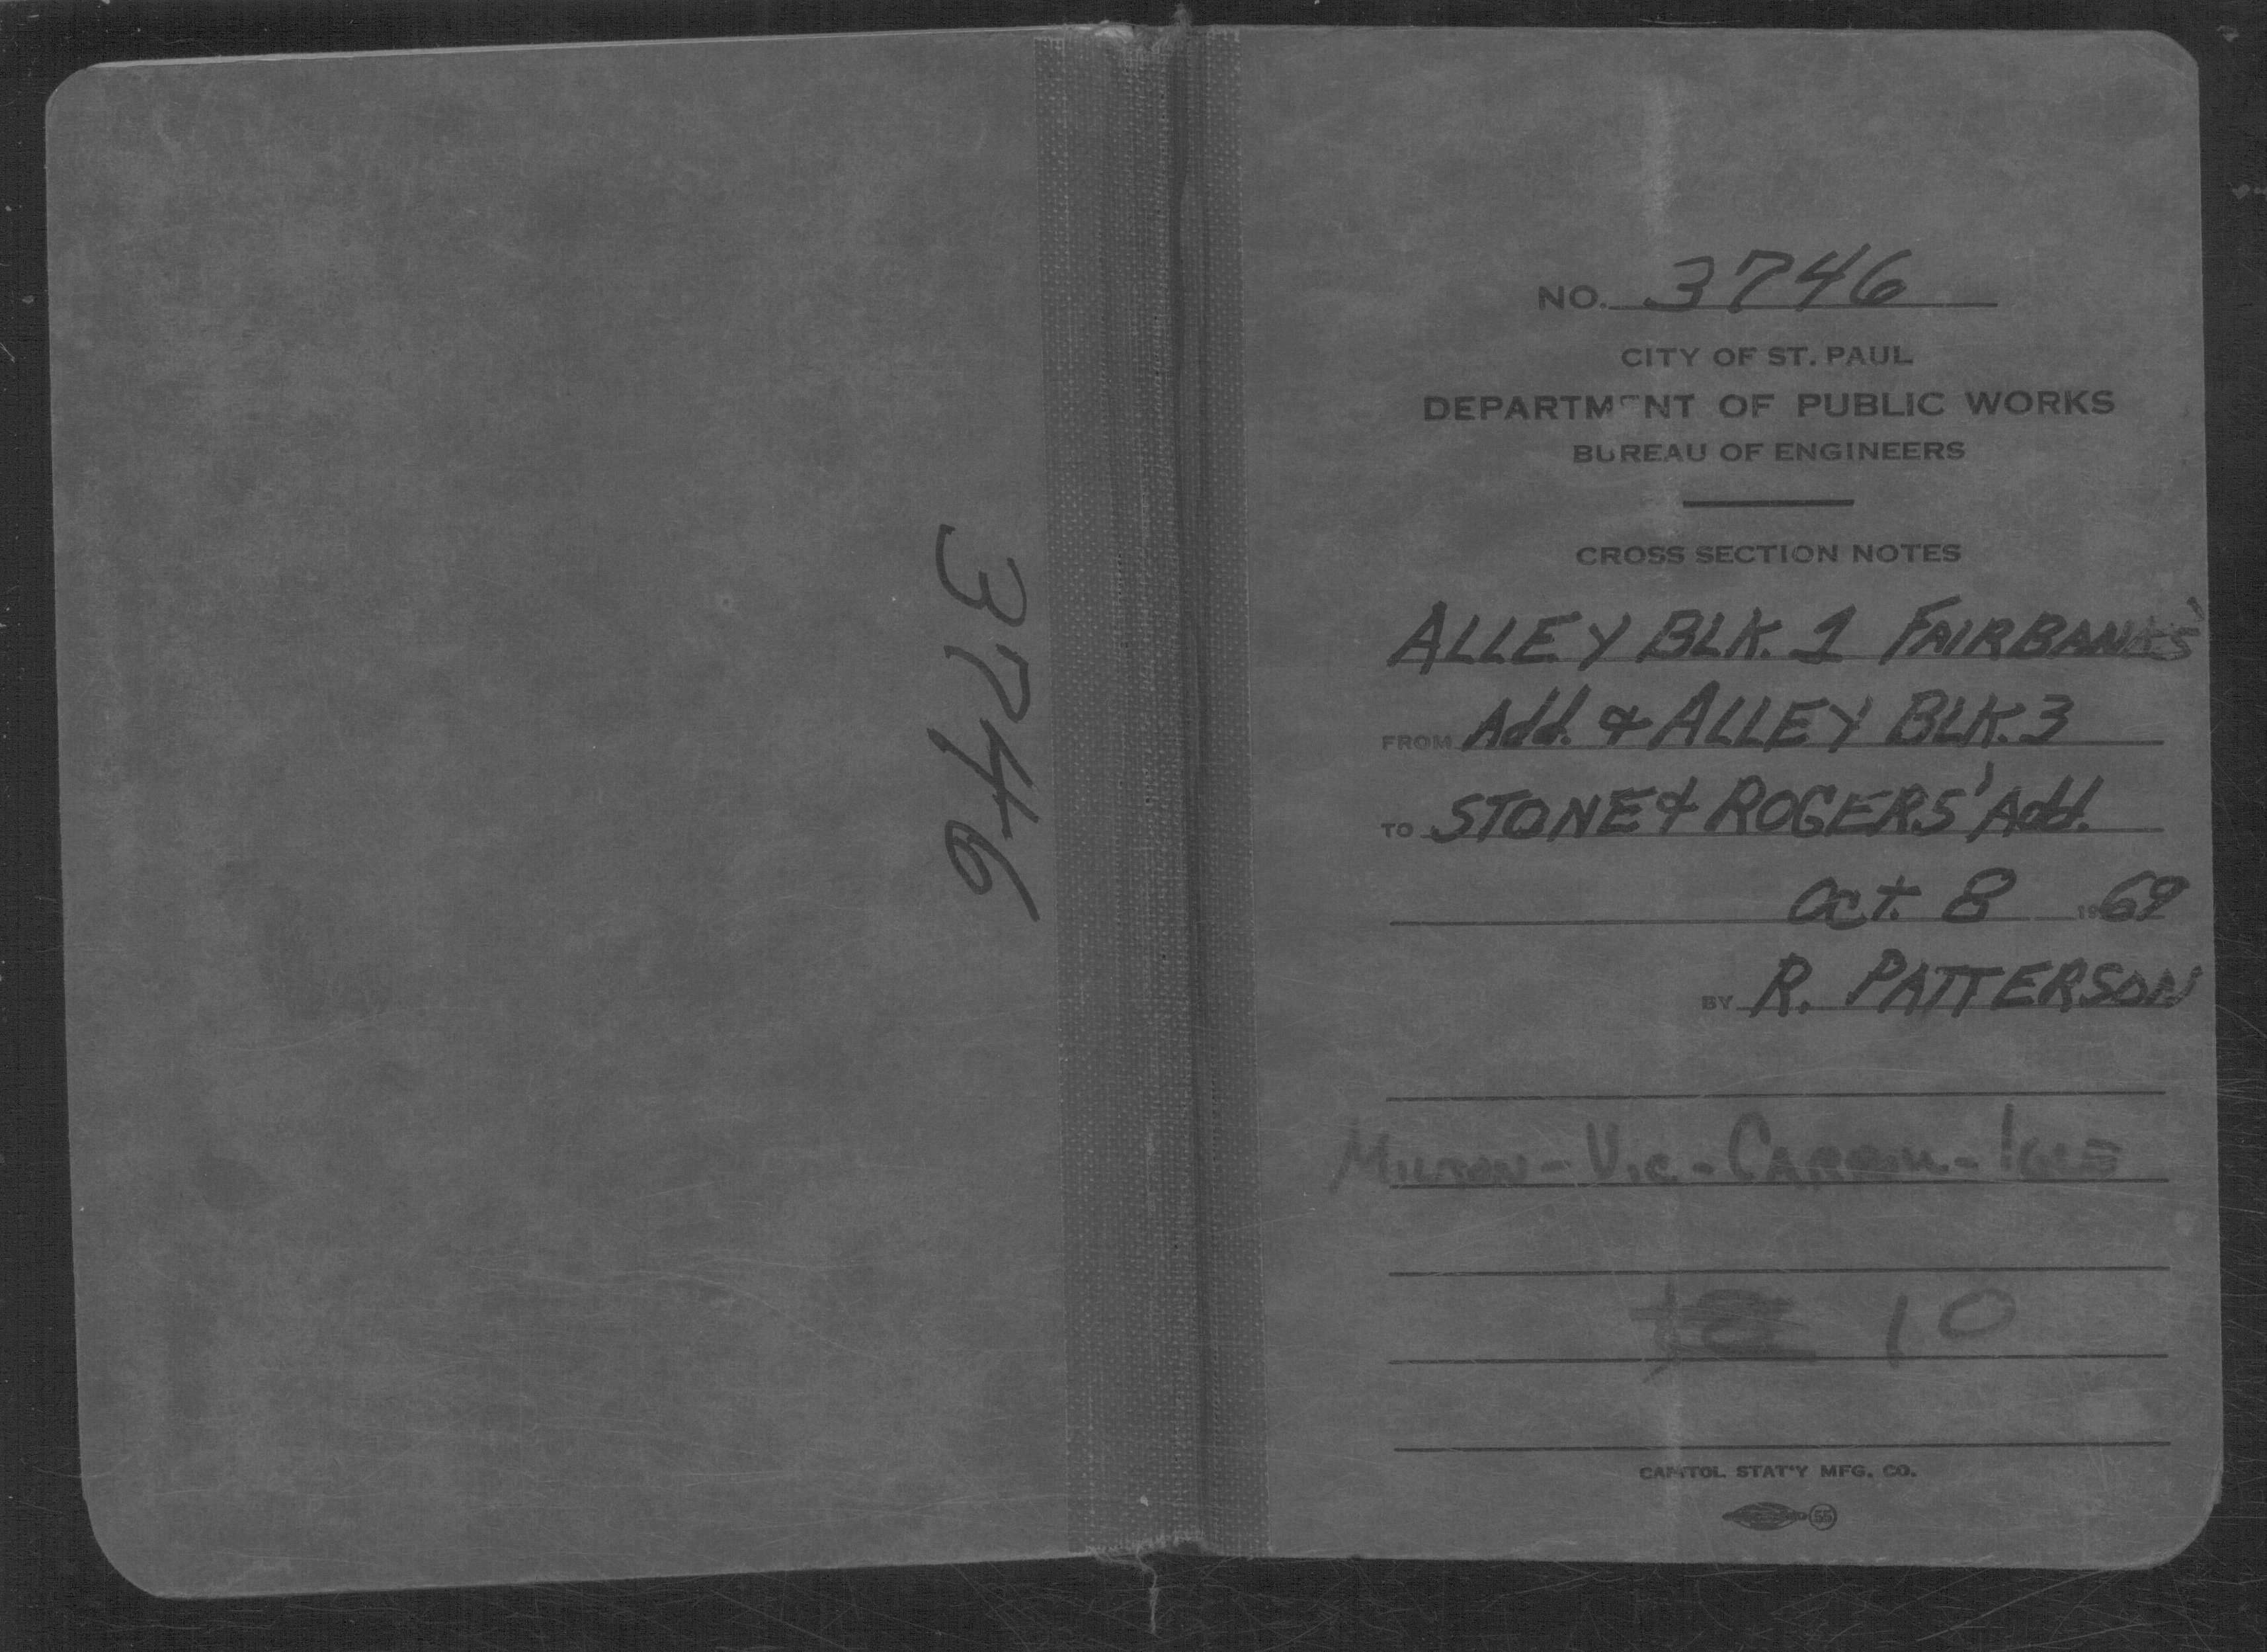 3746
NO. 3746
CITY OF ST. PAUL
DEPARTMENT OF PUBLIC WORKS
BUREAU OF ENGINEERS
CROSS SECTION NOTES
ALLEY BLK. 1 FAIRBANKS'
FROM Add. & ALLEY BLK. 3
TO STONE & ROGERS' Add.
Oct. 8 1969
BY R. PATTERSON
MILTON - VIC. - CARROLL - IGLE
10
CAPITOL STAT'Y MFG. CO.
55